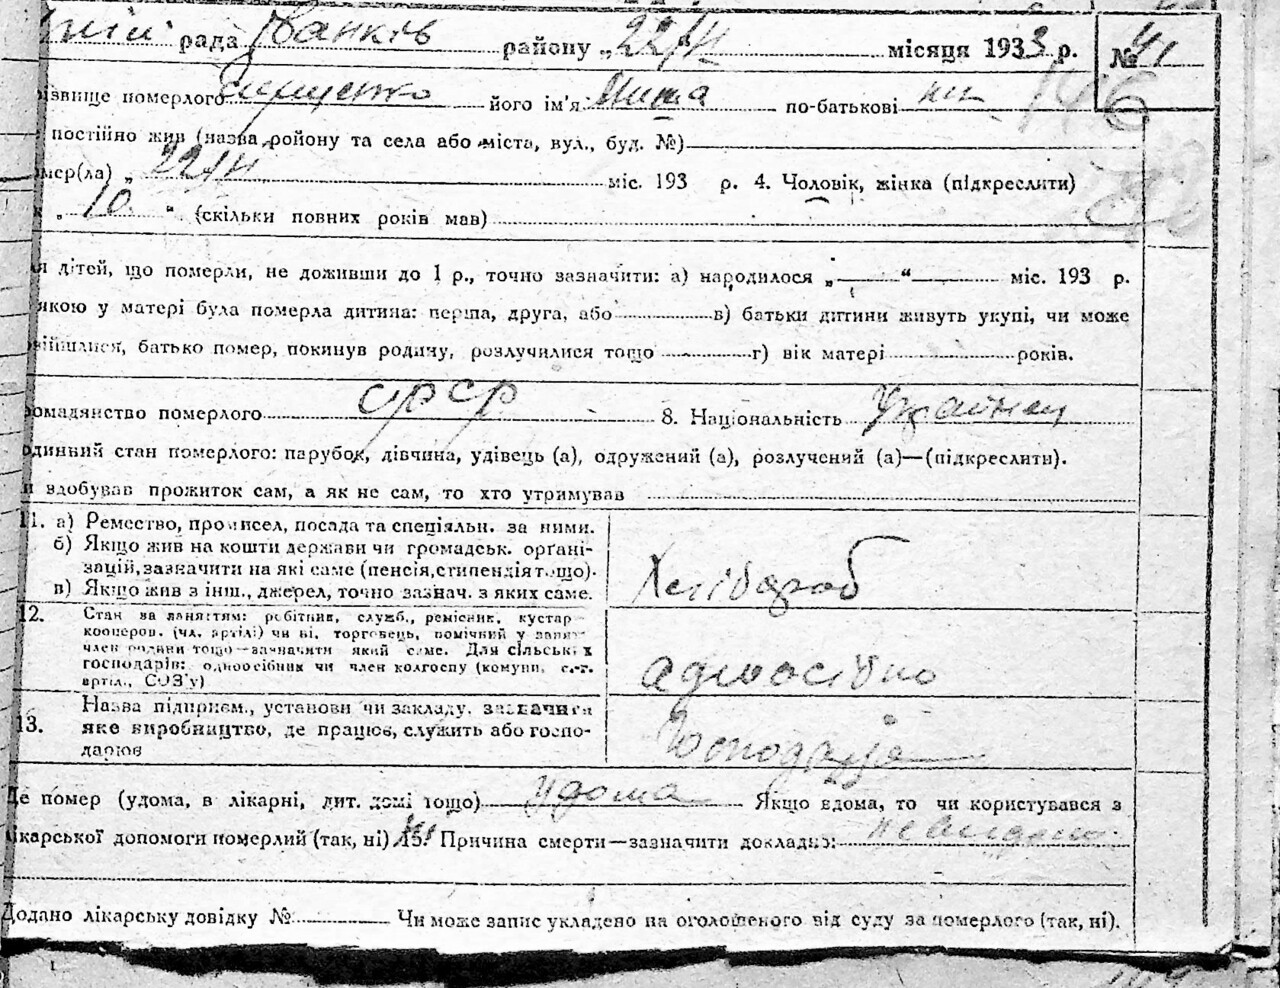 рада Іванків району „22/IV місяця 1933 р. № 41
146
різвище померлого його ім'я Мина по-батькові
постійно жив (назва району та села або міста, вул., буд. №)
мер(ла) „ 22/IV міс. 193 р. 4. Чоловік, жінка (підкреслити)
„ 10 “ (скільки повних років мав)
я дітей, що померли, не доживши до 1 р., точно зазначити: а) народилося „ “ міс. 193 р.
якою у матері була померла дитина: перша, друга, або в) батьки дитини живуть укупі, чи може
зійшлися, батько помер, покинув родину, розлучилися тощо г) вік матері років.
ромадянство померлого СРСР 8. Національність Українец
одинний стан померлого: парубок, дівчина, удівець (а), одружений (а), розлучений (а)—(підкреслити).
и вдобував прожиток сам, а як не сам, то хто утримував
11. а) Ремество, промисел, посада та спеціяльн. за ними.
б) Якщо жив на кошти держави чи громадськ. орґані-
зацій, зазначити на які саме (пенсія, стипендія тощо).
в) Якщо жив з інш., джерел, точно зазнач. з яких саме.
Хлібороб
12. Стан за заняттям: робітник, служб., ремісник, кустар
кооперов. (чл. артілі) чи ні, торговець, помічний у занят-
член родини тощо—зазначити який саме. Для сільських
господарів: одноосібник чи член колгоспу (комуни, с.-г.
артіл., СОЗ'у)
адноосібно
13. Назва підприєм., установи чи закладу, зазначити
яке виробництво, де працює, служить або госпо-
дарює
Господарія
Де помер (удома, в лікарні, дит. домі тощо) удома Якщо вдома, то чи користувався з
ікарської допомоги померлий (так, ні) ні 15. Причина смерти—зазначити докладно: невидомо
Додано лікарську довідку № Чи може запис укладено на оголошеного від суду за померлого (так, ні).